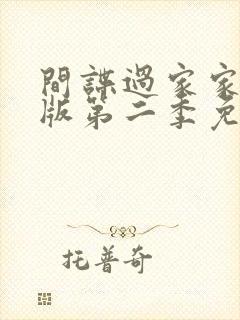 間諜過家家
版第二季免
托普奇